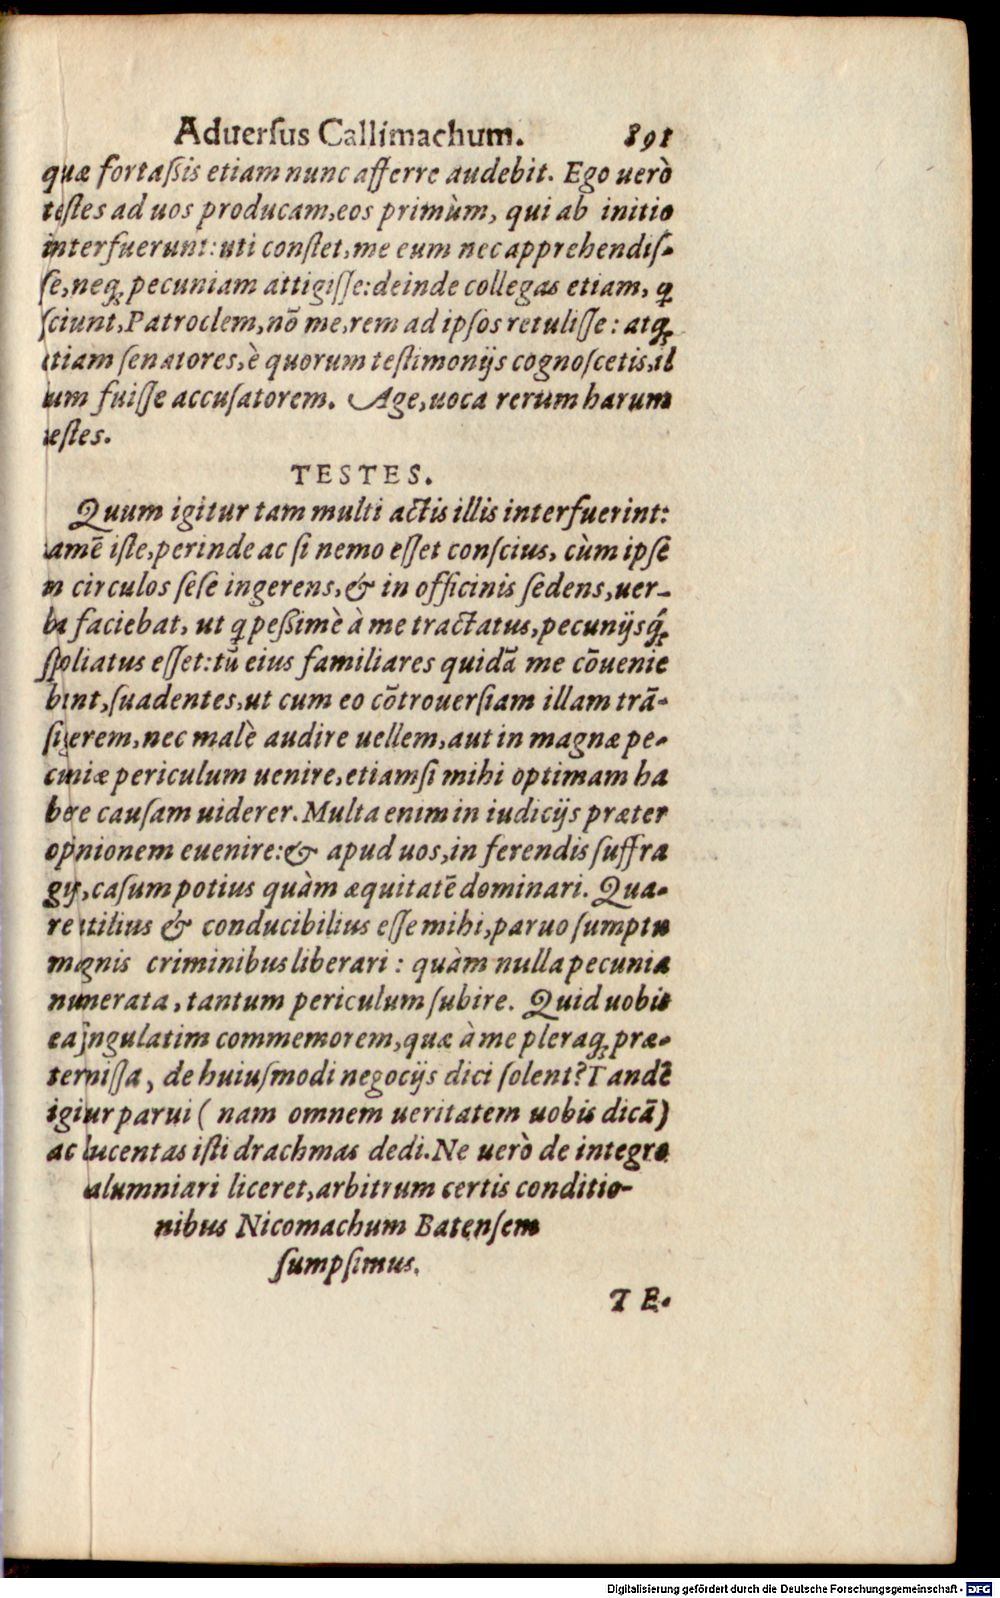 Aduersus Callimachum. 891
quæ fortaßis etiam nunc afferre audebit. Ego uerò
testes ad uos producam, eos primùm, qui ab initio
interfuerunt: uti constet, me eum nec apprehendis-
se, neq; pecuniam attigisse: deinde collegas etiam, q
sciunt, Patroclem, nō me, rem ad ipsos retulisse: atq;
etiam senatores, è quorum testimonijs cognoscetis, il
lum fuisse accusatorem. Age, uoca rerum harum
testes.
TESTES.
Quum igitur tam multi actis illis interfuerint:
tamē iste, perinde ac si nemo esset conscius, cùm ipse
in circulos sese ingerens, & in officinis sedens, uer-
ba faciebat, ut q peßimè à me tractatus, pecunijsq́;
spoliatus esset: tū eius familiares quidā me cōuenie
bant, suadentes, ut cum eo cōtrouersiam illam trā-
sigerem, nec malè audire uellem, aut in magnæ pe-
cuniæ periculum uenire, etiamsi mihi optimam ha
bere causam uiderer. Multa enim in iudicijs præter
opinionem euenire: & apud uos, in ferendis suffra
gijs, casum potius quàm æquitatē dominari. Qua-
re utilius & conducibilius esse mihi, paruo sumptu
magnis criminibus liberari: quàm nulla pecunia
numerata, tantum periculum subire. Quid uobis
ea singulatim commemorem, quæ à me pleraq; præ-
termissa, de huiusmodi negocijs dici solent? Tandē
igitur parui (nam omnem ueritatem uobis dicā)
ac ducentas isti drachmas dedi. Ne uerò de integro
calumniari liceret, arbitrum certis conditio-
nibus Nicomachum Batensem
sumpsimus.
TE-
Digitalisierung gefördert durch die Deutsche Forschungsgemeinschaft - DFG